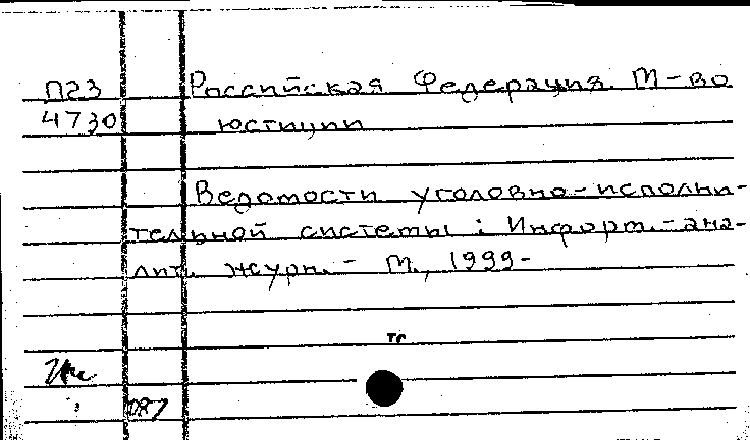 П23 Российская Федерация. М-во
4730 юстиции
Ведомости уголовно-исполни-
тельной системы : Информ.-ана-
лит. журн. - М., 1999-
тг
087